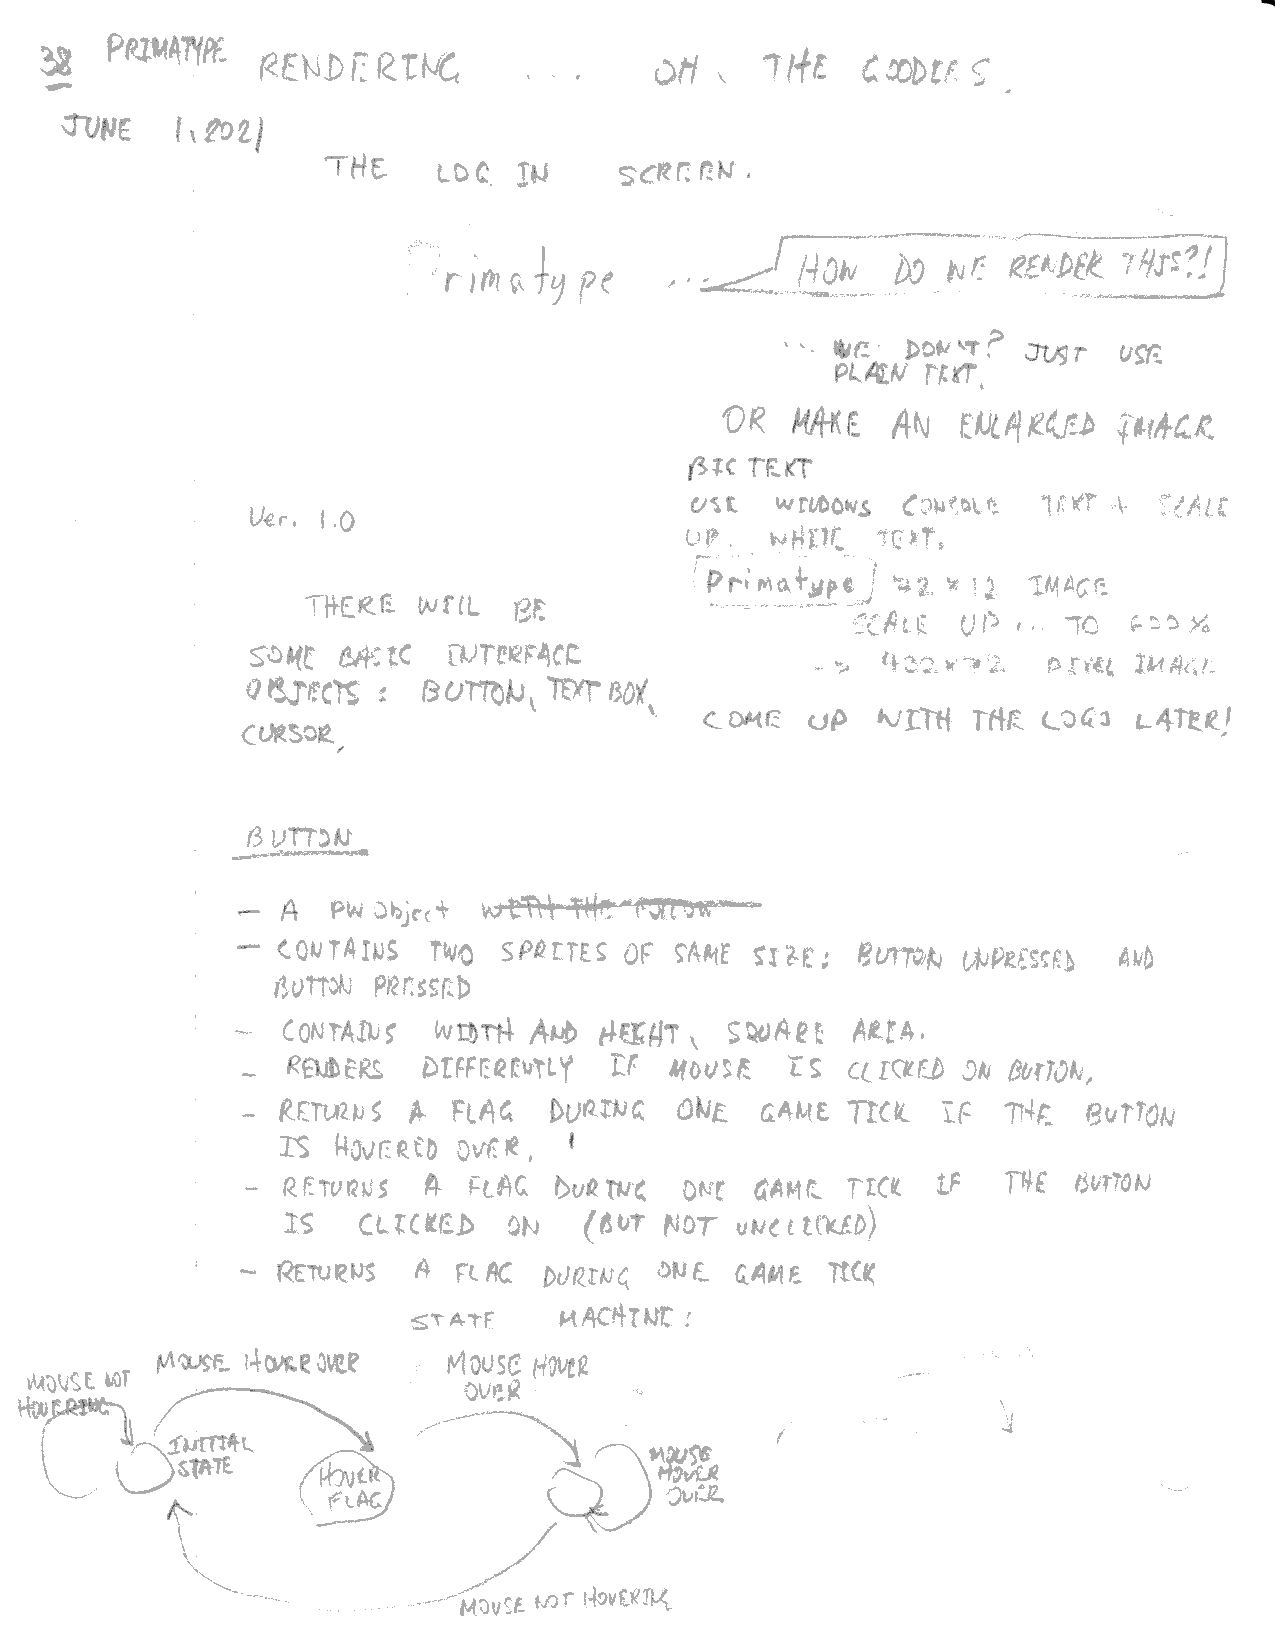 38 PRIMATYPE RENDERING ... OH, THE GOODIES.
JUNE 1, 2021
THE LOG IN SCREEN.
Primatype ...
HOW DO WE RENDER THIS?!
... WE DON'T? JUST USE
PLAIN TEXT.
OR MAKE AN ENLARGED IMAGE
BIG TEXT
USE WINDOWS CONSOLE TEXT + SCALE
UP. WHITE TEXT.
Primatype 72 x 12 IMAGE
SCALE UP ... TO 600%
-> 432x72 PIXEL IMAGE
COME UP WITH THE LOGO LATER!
Ver. 1.0
THERE WILL BE
SOME BASIC INTERFACE
OBJECTS: BUTTON, TEXT BOX,
CURSOR,
BUTTON
- A PW Object WITH THE FOLLOW
- CONTAINS TWO SPRITES OF SAME SIZE: BUTTON UNPRESSED AND
BUTTON PRESSED
- CONTAINS WIDTH AND HEIGHT, SQUARE AREA.
- RENDERS DIFFERENTLY IF MOUSE IS CLICKED ON BUTTON,
- RETURNS A FLAG DURING ONE GAME TICK IF THE BUTTON
IS HOVERED OVER.
- RETURNS A FLAG DURING ONE GAME TICK IF THE BUTTON
IS CLICKED ON (BUT NOT UNCLICKED)
- RETURNS A FLAG DURING ONE GAME TICK
STATE MACHINE:
MOUSE NOT
HOVERING
MOUSE HOVER OVER
MOUSE HOVER
OVER
INITIAL
STATE
HOVER
FLAG
MOUSE
HOVER
OVER
MOUSE NOT HOVERING